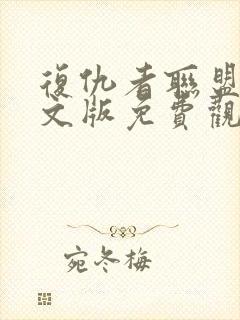 復仇者聯盟
文版免費觀
宛冬梅